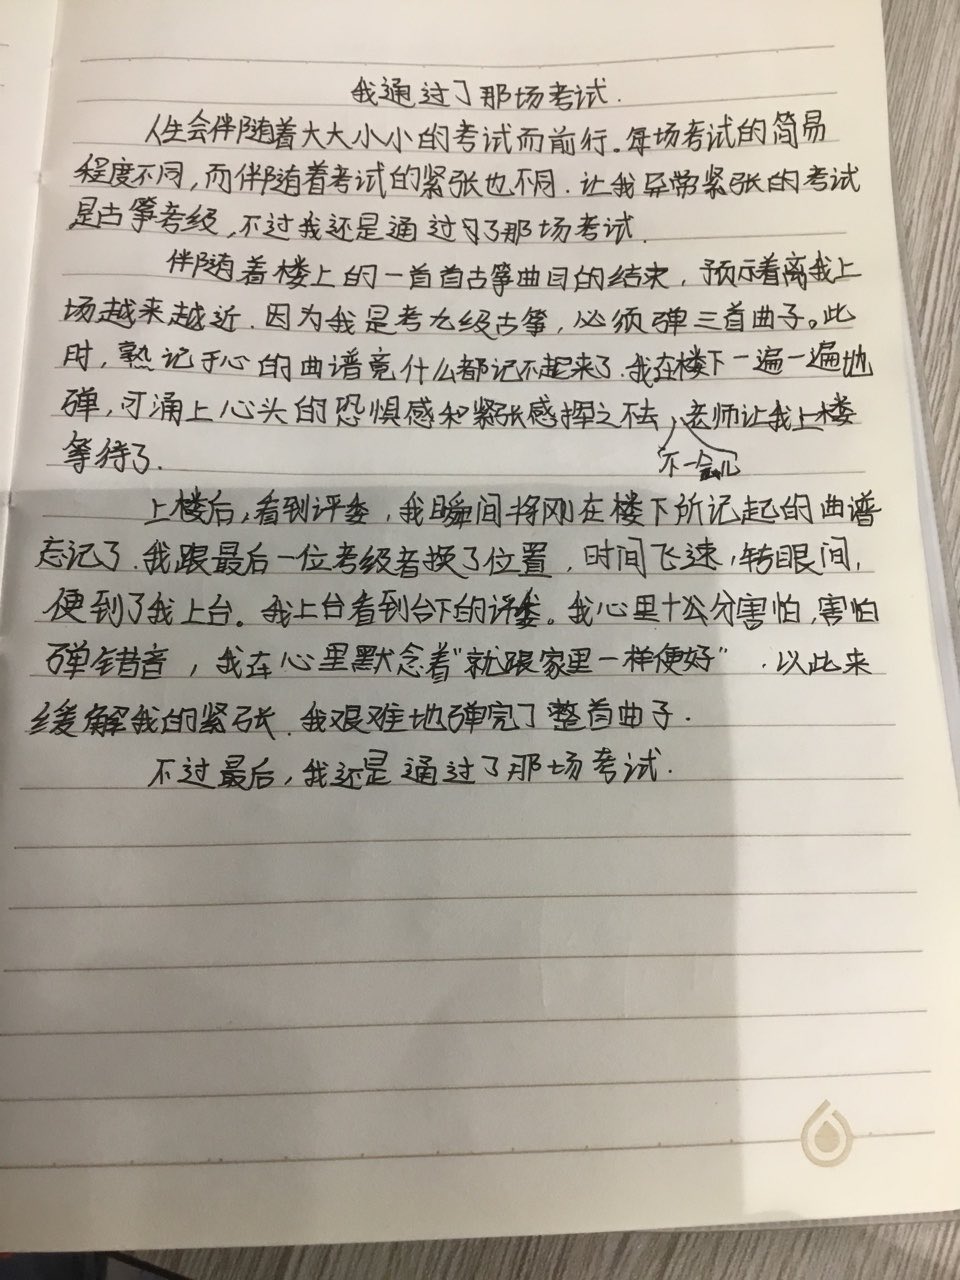 我通过了那场考试.
人生会伴随着大大小小的考试而前行。每场考试的简易
程度不同,而伴随着考试的紧张也不同.让我异常紧张的考试
是古筝考级,不过我还是通过了那场考试.
伴随着楼上的一首首古筝曲目的结束,预示着离我上
场越来越近.因为我是考九级古筝,必须弹三首曲子。此
时,熟记于心的曲谱竟什么都记不起来了.我在楼下一遍一遍地
弹,可涌上心头的恐惧感和紧张感挥之不去,不一会儿老师让我上楼
等待了.
上楼后,看到评委,我瞬间将刚在楼下所记起的曲谱
忘记了.我跟最后一位考级者换了位置,时间飞速,转眼间,
便到了我上台。我上台看到台下的评委。我心里十分害怕,害怕
弹错音,我在心里默念着"就跟家里一样便好".以此来
缓解我的紧张.我艰难地弹完了整首曲子.
不过最后,我还是通过了那场考试.